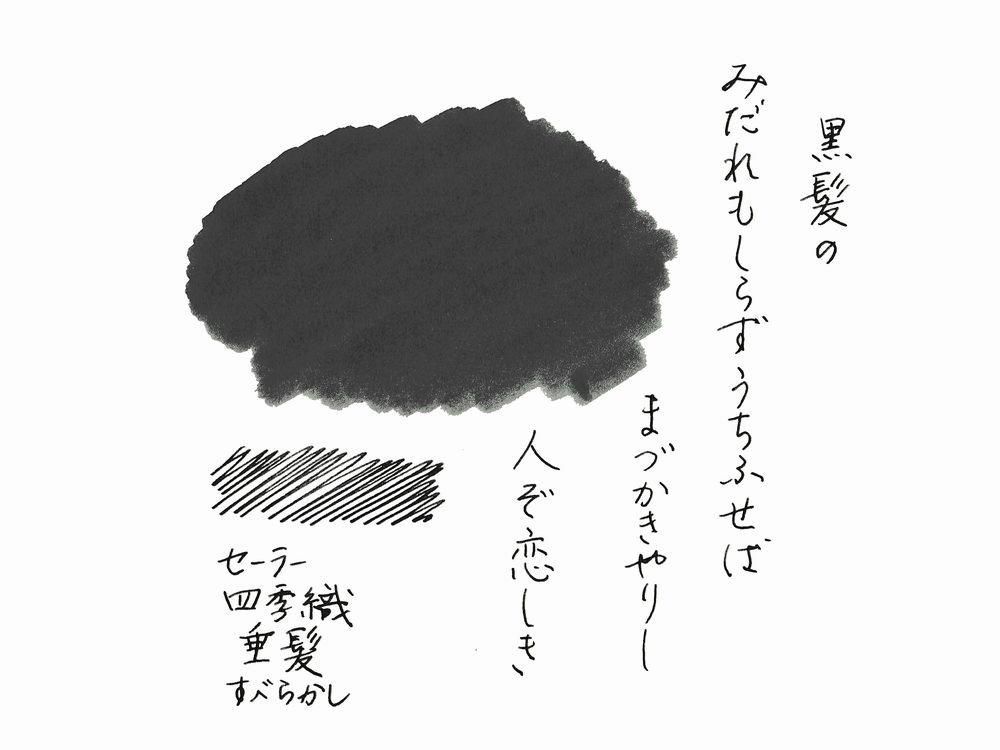 黒髪の
みだれもしらずうちふせば
まづかきやりし
人ぞ恋しき
セーラー
四季織
垂髪
すべらかし